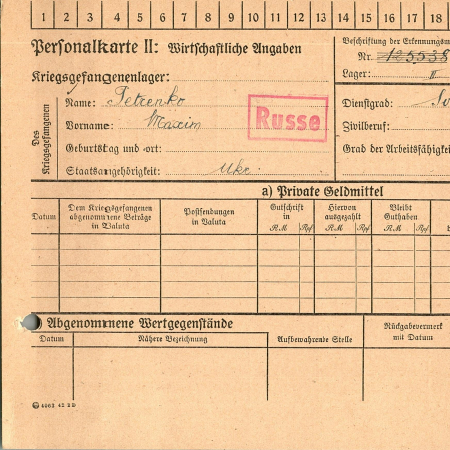 1 2 3 4 5 6 7 8 9 10 11 12 13 14 15 16 17 18
Personalkarte II: Wirtschaftliche Angaben
Beschriftung der Erkennungsm
Nr. 125538
Lager: II
Kriegsgefangenenlager:
Des Kriegsgefangenen
Name: Petrenko
Vorname: Maxim
Russe
Geburtstag und -ort:
Staatsangehörigkeit: Ukr.
Dienstgrad:
Zivilberuf:
Grad der Arbeitsfähigkei
a) Private Geldmittel
Datum
Dem Kriegsgefangenen abgenommene Beträge in Valuta
Postsendungen in Valuta
Gutschrift in
RM Rpf
Hiervon ausgezahlt
RM Rpf
Bleibt Guthaben
RM Rpf
Abgenommene Wertgegenstände
Datum
Nähere Bezeichnung
Aufbewahrende Stelle
Rückgabevermerk mit Datum